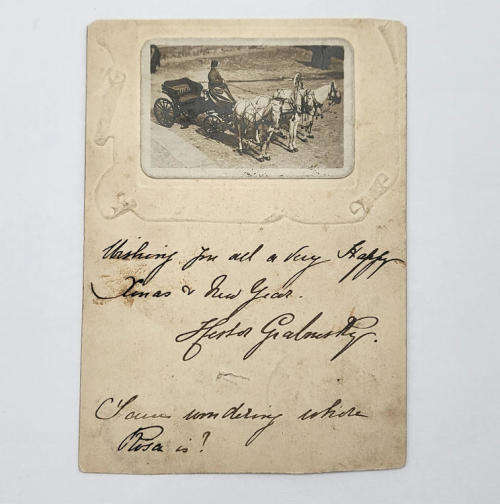 Wishing you all a very Happy
Xmas & New Year.
Hestor
wondering where
Rosa is?